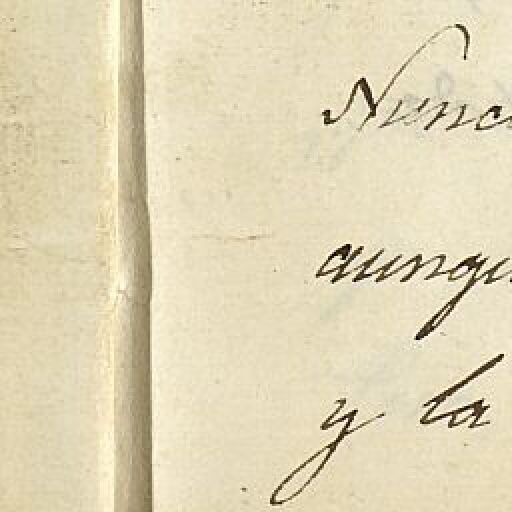 Nunc
aunqu
y la